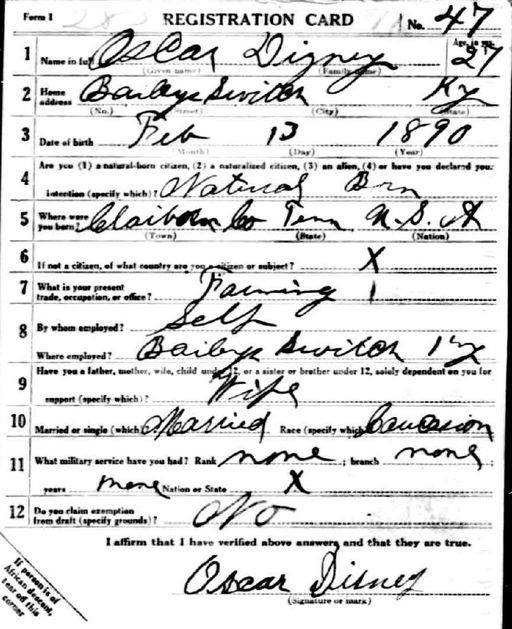 Form 1 REGISTRATION CARD No. 47
1 Name in full Oscar Disney Age, in yrs. 27
(Given name) (Family name)
2 Home address Baileys Switch Ky
(No.) (Street) (City) (State)
3 Date of birth Feb 13 1890
(Month) (Day) (Year)
4 Are you (1) a natural-born citizen, (2) a naturalized citizen, (3) an alien, (4) or have you declared your
intention (specify which)? Natural Brn
5 Where were you born? Claiborn Co Tenn U.S.A
(Town) (State) (Nation)
6 If not a citizen, of what country are you a citizen or subject? X
7 What is your present trade, occupation, or office? Farming 1
8 By whom employed? Self
Where employed? Baileys Switch Ky
9 Have you a father, mother, wife, child under 12, or a sister or brother under 12, solely dependent on you for
support (specify which)? Wife
10 Married or single (which) Married Race (specify which) Caucasion
11 What military service have you had? Rank none ; branch none ;
years none Nation or State X
12 Do you claim exemption from draft (specify grounds)? No
I affirm that I have verified above answers and that they are true.
Oscar Disney
(Signature or mark)
If person is of
African descent,
tear off this
corner